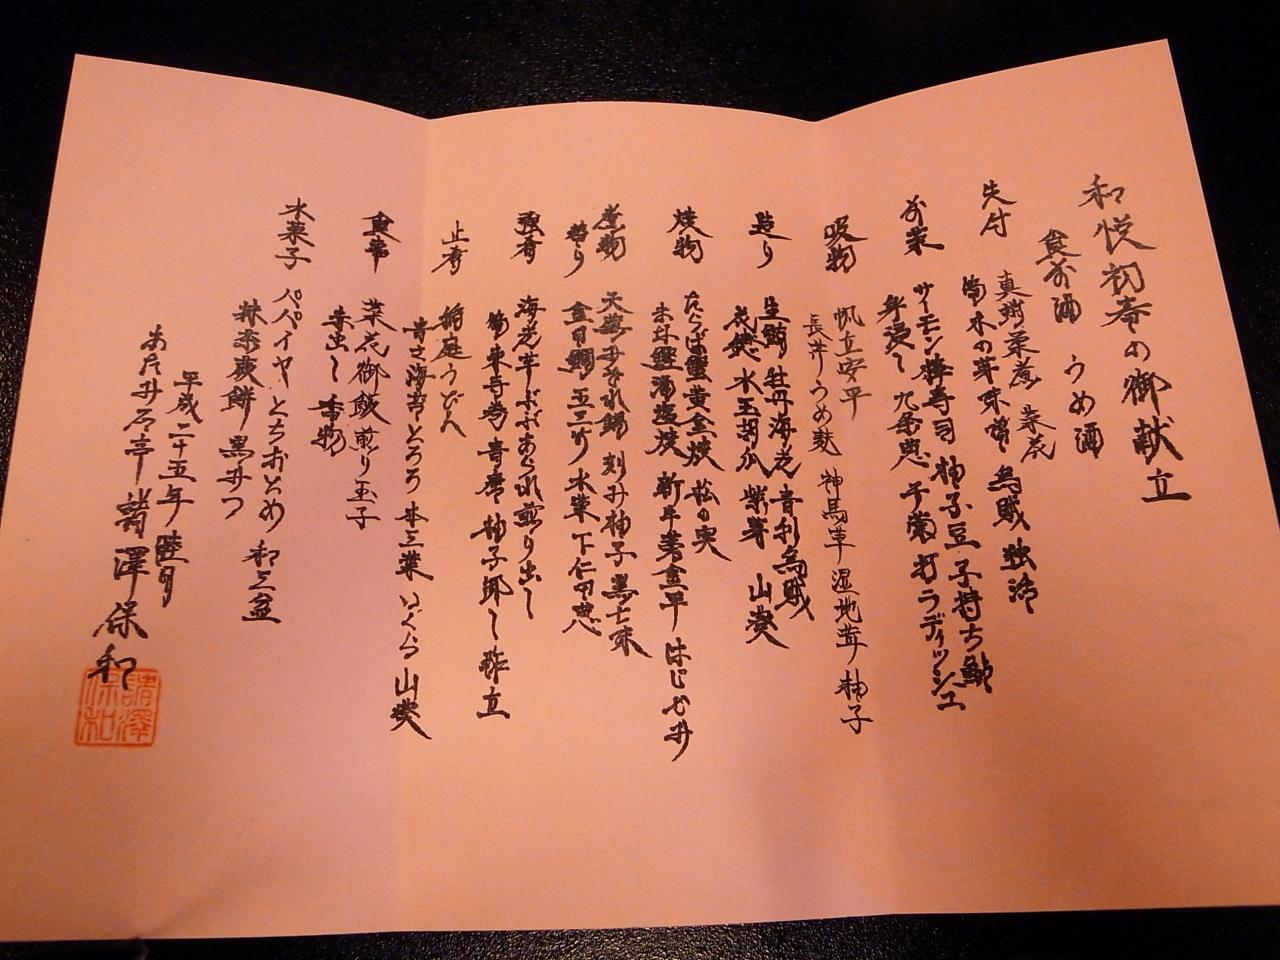 和悦初春の御献立
食前酒 うめ酒
先付 真鯛菜煮 菜花
筍木の芽味噌 烏賊 独活
前菜 サーモン棒寿司 柚子豆 子持ち鮎
辛浸し 九条葱 子蕪 打ラディッシュ
吸物 帆立安平
長芋うめ麩 神馬草 湿地茸 柚子
造り 生鮪 牡丹海老 青利烏賊
花穂 水玉胡瓜 紫芽 山葵
焼物 たらば蟹黄金焼 松の実
未必鰹湯塩焼 新牛蒡金平 はじかみ
煮物 天蕪みぞれ鍋 刻み柚子 黒七味
替り 金目鯛 玉こ竹 水菜 下仁田葱
強肴 海老芋ぶぶあられ煎り出し
筍東寺巻 青唐 柚子卸し 酢立
止肴 稲庭うどん
青さ海苔とろろ 本三葉 いくら 山葵
食事 菜花御飯 煎り玉子
赤出し 香物
水菓子 パパイヤ とちおとめ 和三盆
抹茶蕨餅 黒みつ
平成二十五年 睦月
あたみ石亭 諸澤保和
諸澤保和